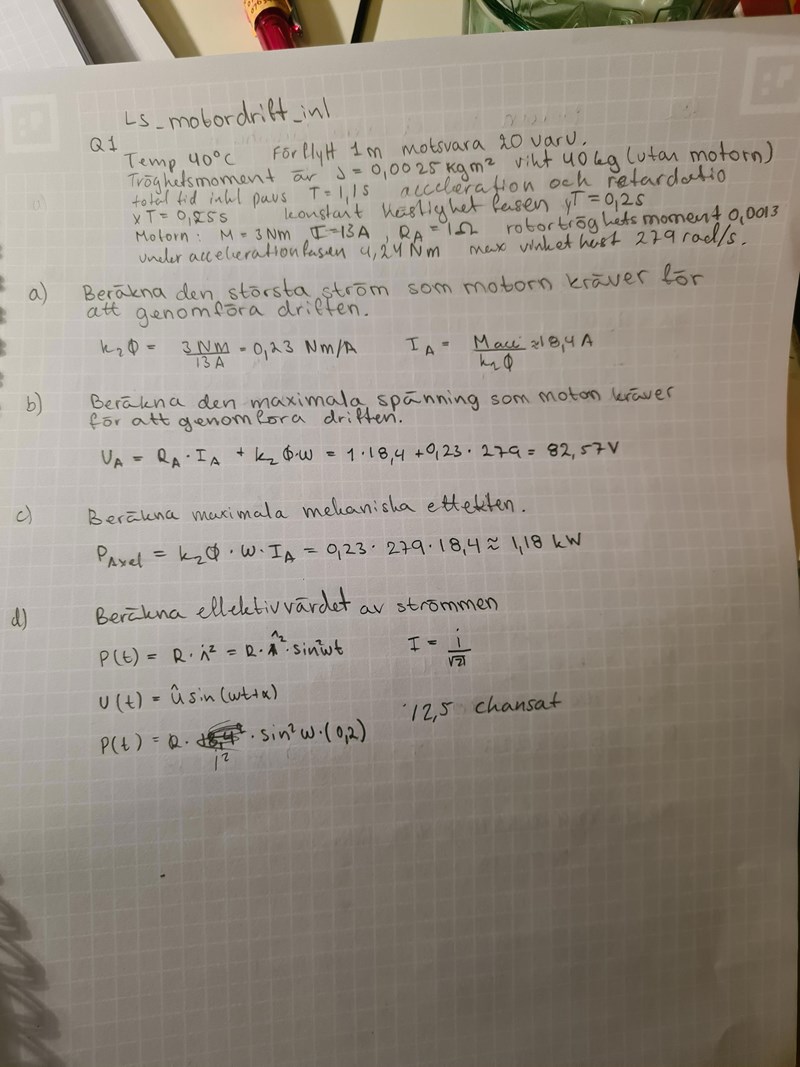 Ls_motordrift_inl
Q1
Temp 40°C Förflytt 1m motsvara 20 varv.
Tröghetsmoment är J = 0,0025 kgm² vikt 40 kg (utan motorn)
total tid inkl paus T = 1,1s acceleration och retardatio
xT = 0,25s konstant hastighet fasen yT = 0,2s
Motorn: M = 3Nm I = 13A, RA = 1Ω rotortröghetsmoment 0,0013
under accelerationfasen 4,24 Nm max vinkel hast 279 rad/s.
a) Beräkna den största ström som motorn kräver för
att genomföra driften.
k₂Φ = 3 Nm / 13 A = 0,23 Nm/A I_A = Macc / k₂Φ ≈ 18,4 A
b) Beräkna den maximala spänning som moton kräver
för att genomföra driften.
U_A = R_A · I_A + k₂Φ·w = 1·18,4 + 0,23 · 279 = 82,57V
c) Beräkna maximala mekaniska effekten.
P_Axel = k₂Φ · w · I_A = 0,23 · 279 · 18,4 ≈ 1,18 kW
d) Beräkna effektivvärdet av strömmen
P(t) = R · i² = R · î² · sin²wt I = i / √2
U(t) = û sin(wt+α)
12,5 chansat
P(t) = R · i² · sin² w · (0,2)